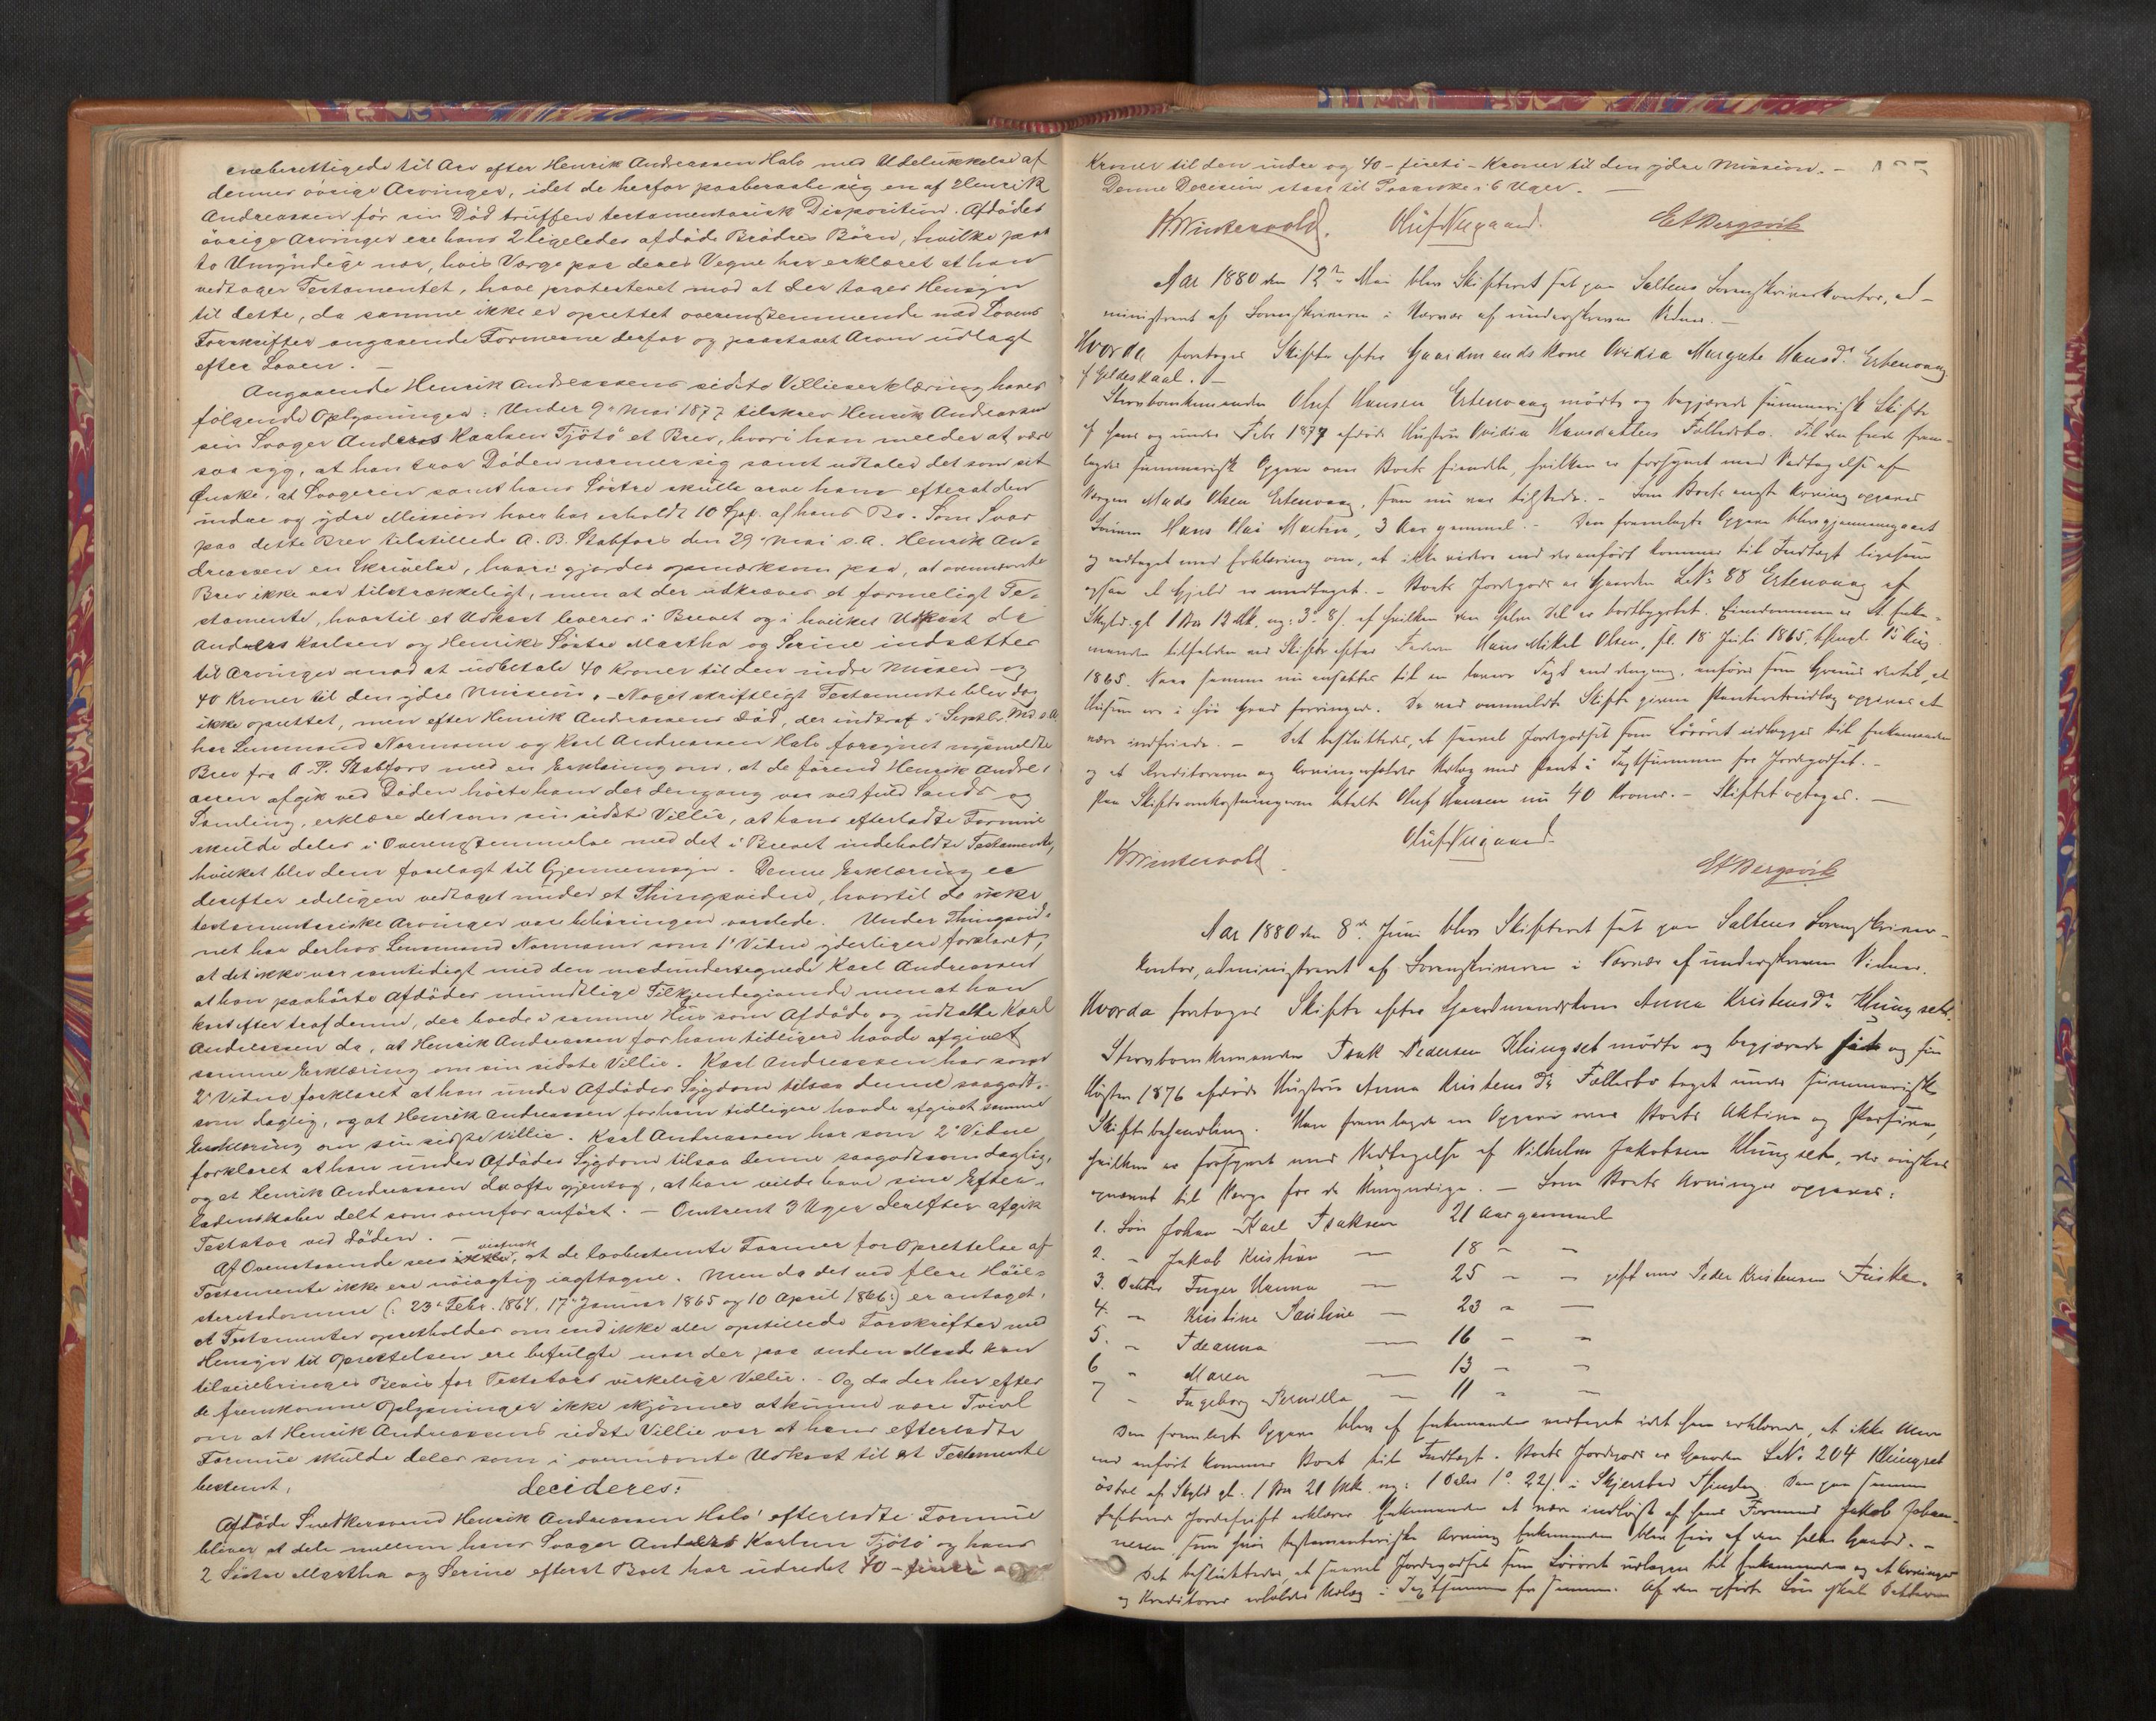 eneberettigede til Arv efter Henrik Andreassen Halv med Udelukkelse af
dennes övrige Arvinger, idet de herfor paaberaabe sig en af Henrik
Andreassen för sin Död truffen testamentarisk Disposition. Afdödes
övrige Arvinger ere hans 2 ligeledes afdöde Brödres Börn, hvilke paa
to Umyndige nær, hvis Værge paa deres Vegne har erklæret at han
vedtager Testamentet, have protesteret mod at der tages Hensyn
til dette, da samme ikke er oprettet overensstemmende med Lovens
Forskrifter angaaende Formerne derfor og paastaaet Arven udlagt
efter Loven. –
Angaaende Henrik Andreassens sidste Villieserklæring haves
fölgende Oplysninger: Under 9de Mai 1877 tilskrev Henrik Andreassen
sin Svoger Anders Kaalsen Tjötö et Brev, hvori han melder at være
saa syg, at han troer Döden nærmer sig samt udtaler det som sit
Önske, at Svogeren samt hans Söstre skulle arve ham efterat den
indre og ydre Mission hver har erholdt 10 Spd. af hans Bo. Som Svar
paa dette Brev tilstillede A. B. Stabfors den 29 Mai s. A. Henrik An-
dreassen en Skrivelse, hvori gjordes opmærksom paa, at ovennævnte
Brev ikke var tilstrækkeligt, men at der udkræves et formeligt Te-
stamente, hvortil et Udkast leveres i Brevet og i hvilket Udkast de
Anders Karlsen og Henriks Söstre Martha og Serine indsætter
til Arvinger mod at udbetale 40 Kroner til den indre Mission og
40 Kroner til den ydre Mission. – Noget skriftligt Testamente blev dog
ikke oprettet, men efter Henrik Andreassens Död, der indtraf i Septbr. Md. s. A.
har Lensmand Normann og Karl Andreassen Halv forsynet nysmeldte
Brev fra A. P. Stabfors med en Erklæring om, at de förend Henrik Andre-
assen afgik ved Döden hörte ham der dengang var ved fuld Sands og
Samling, erklære det som sin sidste Villie, at hans efterladte Formue
skulde deles i Overensstemmelse med det i Brevet indeholdte Testamente,
hvilket blev dem forelagt til Gjennemsyn. Denne Erklæring er
derefter edeligen vedtaget under et Thingsvidne, hvortil de ikke
testamentariske Arvinger vare behörigen varslede. Under Thingsvid-
net har derhos Lensmand Normann som 1ste Vidne yderligere forklaret,
at det ikke var samtidigt med den medundertegnede Karl Andreassen
at han paahörte Afdödes mundtlige Tilkjendegivende men at han
kort efter traf denne, der boede i samme Hus som Afdöde og udtalte Karl
Andreassen da, at Henrik Andreassen for ham tidligere havde afgivet
samme Erklæring om sin sidste Villie. Karl Andreassen har som
2det Vidne forklaret at han under Afdödes Sygdom tilsaa denne saagodt-
som daglig, og at Henrik Andreassen for ham tidligere havde afgivet samme
Erklæring om sin sidste Villie. Karl Andreassen har som 2det Vidne
forklaret at han under Afdödes Sygdom tilsaa denne saagodtsom daglig,
og at Henrik Andreassen da ofte gjentog, at han vilde have sine Efter-
ladenskaber delt som ovenfor anfört. – Omtrent 3 Uger derefter afgik
Testator ved Döden. –
Af Ovenstaaende sees at de lovbestemte Former for Oprettelse af
Testamente ikke ere nöiagtig iagttagne. Men da det ved flere Höie-
steretsdomme (: 23de Febr. 1864, 17de Januar 1865 og 10 April 1866:) er antaget,
at Testamenter opretholdes om end ikke alle opstillede Forskrifter med
Hensyn til Oprettelsen ere befulgte naar der paa anden Maade kan
tilveiebringes Bevis for Testators virkelige Villie. – Og da der her efter
de fremkomne Oplysninger ikke skjönnes at kunne være Tvivl
om at Henrik Andreassens sidste Villie var at hans efterladte
Formue skulde deles som i ovennævnte Udkast til et Testamente
bestemt,
decideres:
Afdöde Snedkersvend Henrik Andreassen Halv's efterladte Formue
bliver at dele mellem hans Svoger Anders Karlsen Tjötö og hans
2 Söstre Martha og Serine efterat Boet har udredet 40 – fireti –
Kroner til den indre og 40 – fireti – Kroner til den ydre Mission. –
Denne Decesion staar til Paaanke i 6 Uger. –
H. Wintervold. Oluf Nygaard. E A Bergsvik
Aar 1880 den 12te Mai blev Skifteret sat paa Saltens Sorenskriverkontor, ad-
ministreret af Sorenskriveren i Nærvær af underskrevne Vidner. –
Hvorda foretoges Skifte efter Gaardmandskone Ovidia Margrete Hansdr. Ertenvaag
af Gildeskaal. –
Stervboenkemanden Oluf Hansen Ertenvaag mödte og begjærede summarisk Skifte
af hans og under Febr 1877 afdöde Hustru Ovidia Hansdatters Fællesbo. Til den Ende frem-
lagdes summarisk Opgave over Boets Eiendele, hvilken er forsynet med Vedtagelse af
Værgen Mads Olsen Ertenvaag, som nu var tilstede. – Som Boets eneste Arving opgaves
Sönnen Hans Olai Martin, 3 Aar gammel. – Den fremlagte Opgave blev gjennemgaaet
og vedtaget med Erklæring om, at ikke videre end der anfört kommer Boet til Indtægt ligesom
ogsaa al Gjæld er medtaget. – Boets Jordegods er Gaarden LNo 88 Ertenvaag af
Skyld gl. 1 Vog 12 Mk. ny: 3 8 s. af hvilken den halve Del er bortbygslet. Eiendommen er Enke-
manden tilfalden ved Skifte efter Faderen Hans Mikal Olsen, sl. 18 Juli 1865, thingl. 15 Aug.
1865. Naar samme nu ansættes til en lavere Taxt end dengang, anföres som Grund dertil, at
Husene ere i höi Grad forringede. De ved ommeldte Skifte givne Panteudlæg opgives at
være indfriede. – Det besluttedes, at saavel Jordegodset som Lösöret udlægges til Enkemanden
og at Kreditorerne og Arvingen erholder Udlæg med Pant i Taxtsummen for Jordegodset. –
Paa Skifteomkostningerne betalte Oluf Hansen nu 40 Kroner. – Skiftet optages. –
H Wintervold. Oluf Nygaard. E A Bergsvik
Aar 1880 den 8de Juni blev Skifteret sat paa Saltens Sorenskriver-
kontor, administreret af Sorenskriveren i Nærvær af underskrevne Vidner.
Hvorda foretoges Skifte efter Gaardmandskone Anna Kristensdr. Klungset.
Stervboenkemanden Isak Pedersen Klungset mödte og begjærede sit og sin
Hösten 1876 afdöde Hustru Anna Kristensdr. Fællesbo taget under summarisk
Skiftebehandling. Han fremlagde en Opgave over Boets Aktiva og Passiva,
hvilken er forsynet med Vedtagelse af Vilhelm Jakobsen Klungset, der önskes
opnævnt til Værge for de Umyndige. – Som Boets Arvinger opgaves:
1. Sön Johan Karl Isaksen 21 Aar gammel
2. – Jakob Kristian — 18 – –
3. Datter Inger Hanna — 25 – – gift med Peder Kristensen Fuske.
4. – Kristine Pauline — 23 – –
5. – Ideanna — 16 – –
6 – Maren — 13 – –
7 – Ingeborg Pernilla — 11 – –
Den fremlagte Opgave blev af Enkemanden vedtaget idet han erklærede, at ikke Mere
end anfört kommer Boet til Indtægt. Boets Jordegods er Gaarden LNo. 204 Klungset
östre af Skyld gl. 1 Vog 21 Mk. ny: 1 Daler 1 22 s. i Skjerstad Thinglag. Den paa samme
heftende erklærer Enkemanden at være indlöst af hans Formand Jakob Johan-
nesen, som hvis testamentariske Arving Enkemanden blev Eier af den hele Gaard. –
Det besluttedes, at saavel Jordegodset som Lösöret udlægges til Enkemanden og at Arvinger
og Kreditorer erholder Udlæg i Taxtsummen for samme. Af den opförte Sön skal Datteren